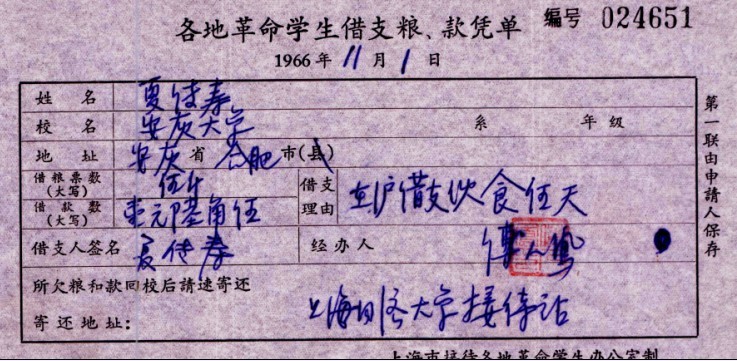 各地革命学生借支粮、款凭单 编号 024651
1966年 11 月 1 日
姓 名 夏传寿
校 名 安灰大学 系 年 级
地 址 安灰省 合肥 市(县)
借粮票数(大写) 伍斤 借支理由 在沪借支伙食伍天
借款数(大写) 元 角伍
借支人签名 夏传寿 经办人
所欠粮和款回校后請速寄还
寄还地址: 上海 大学接待站
第一联由申請人保存
上海市接待各地革命学生办公室制